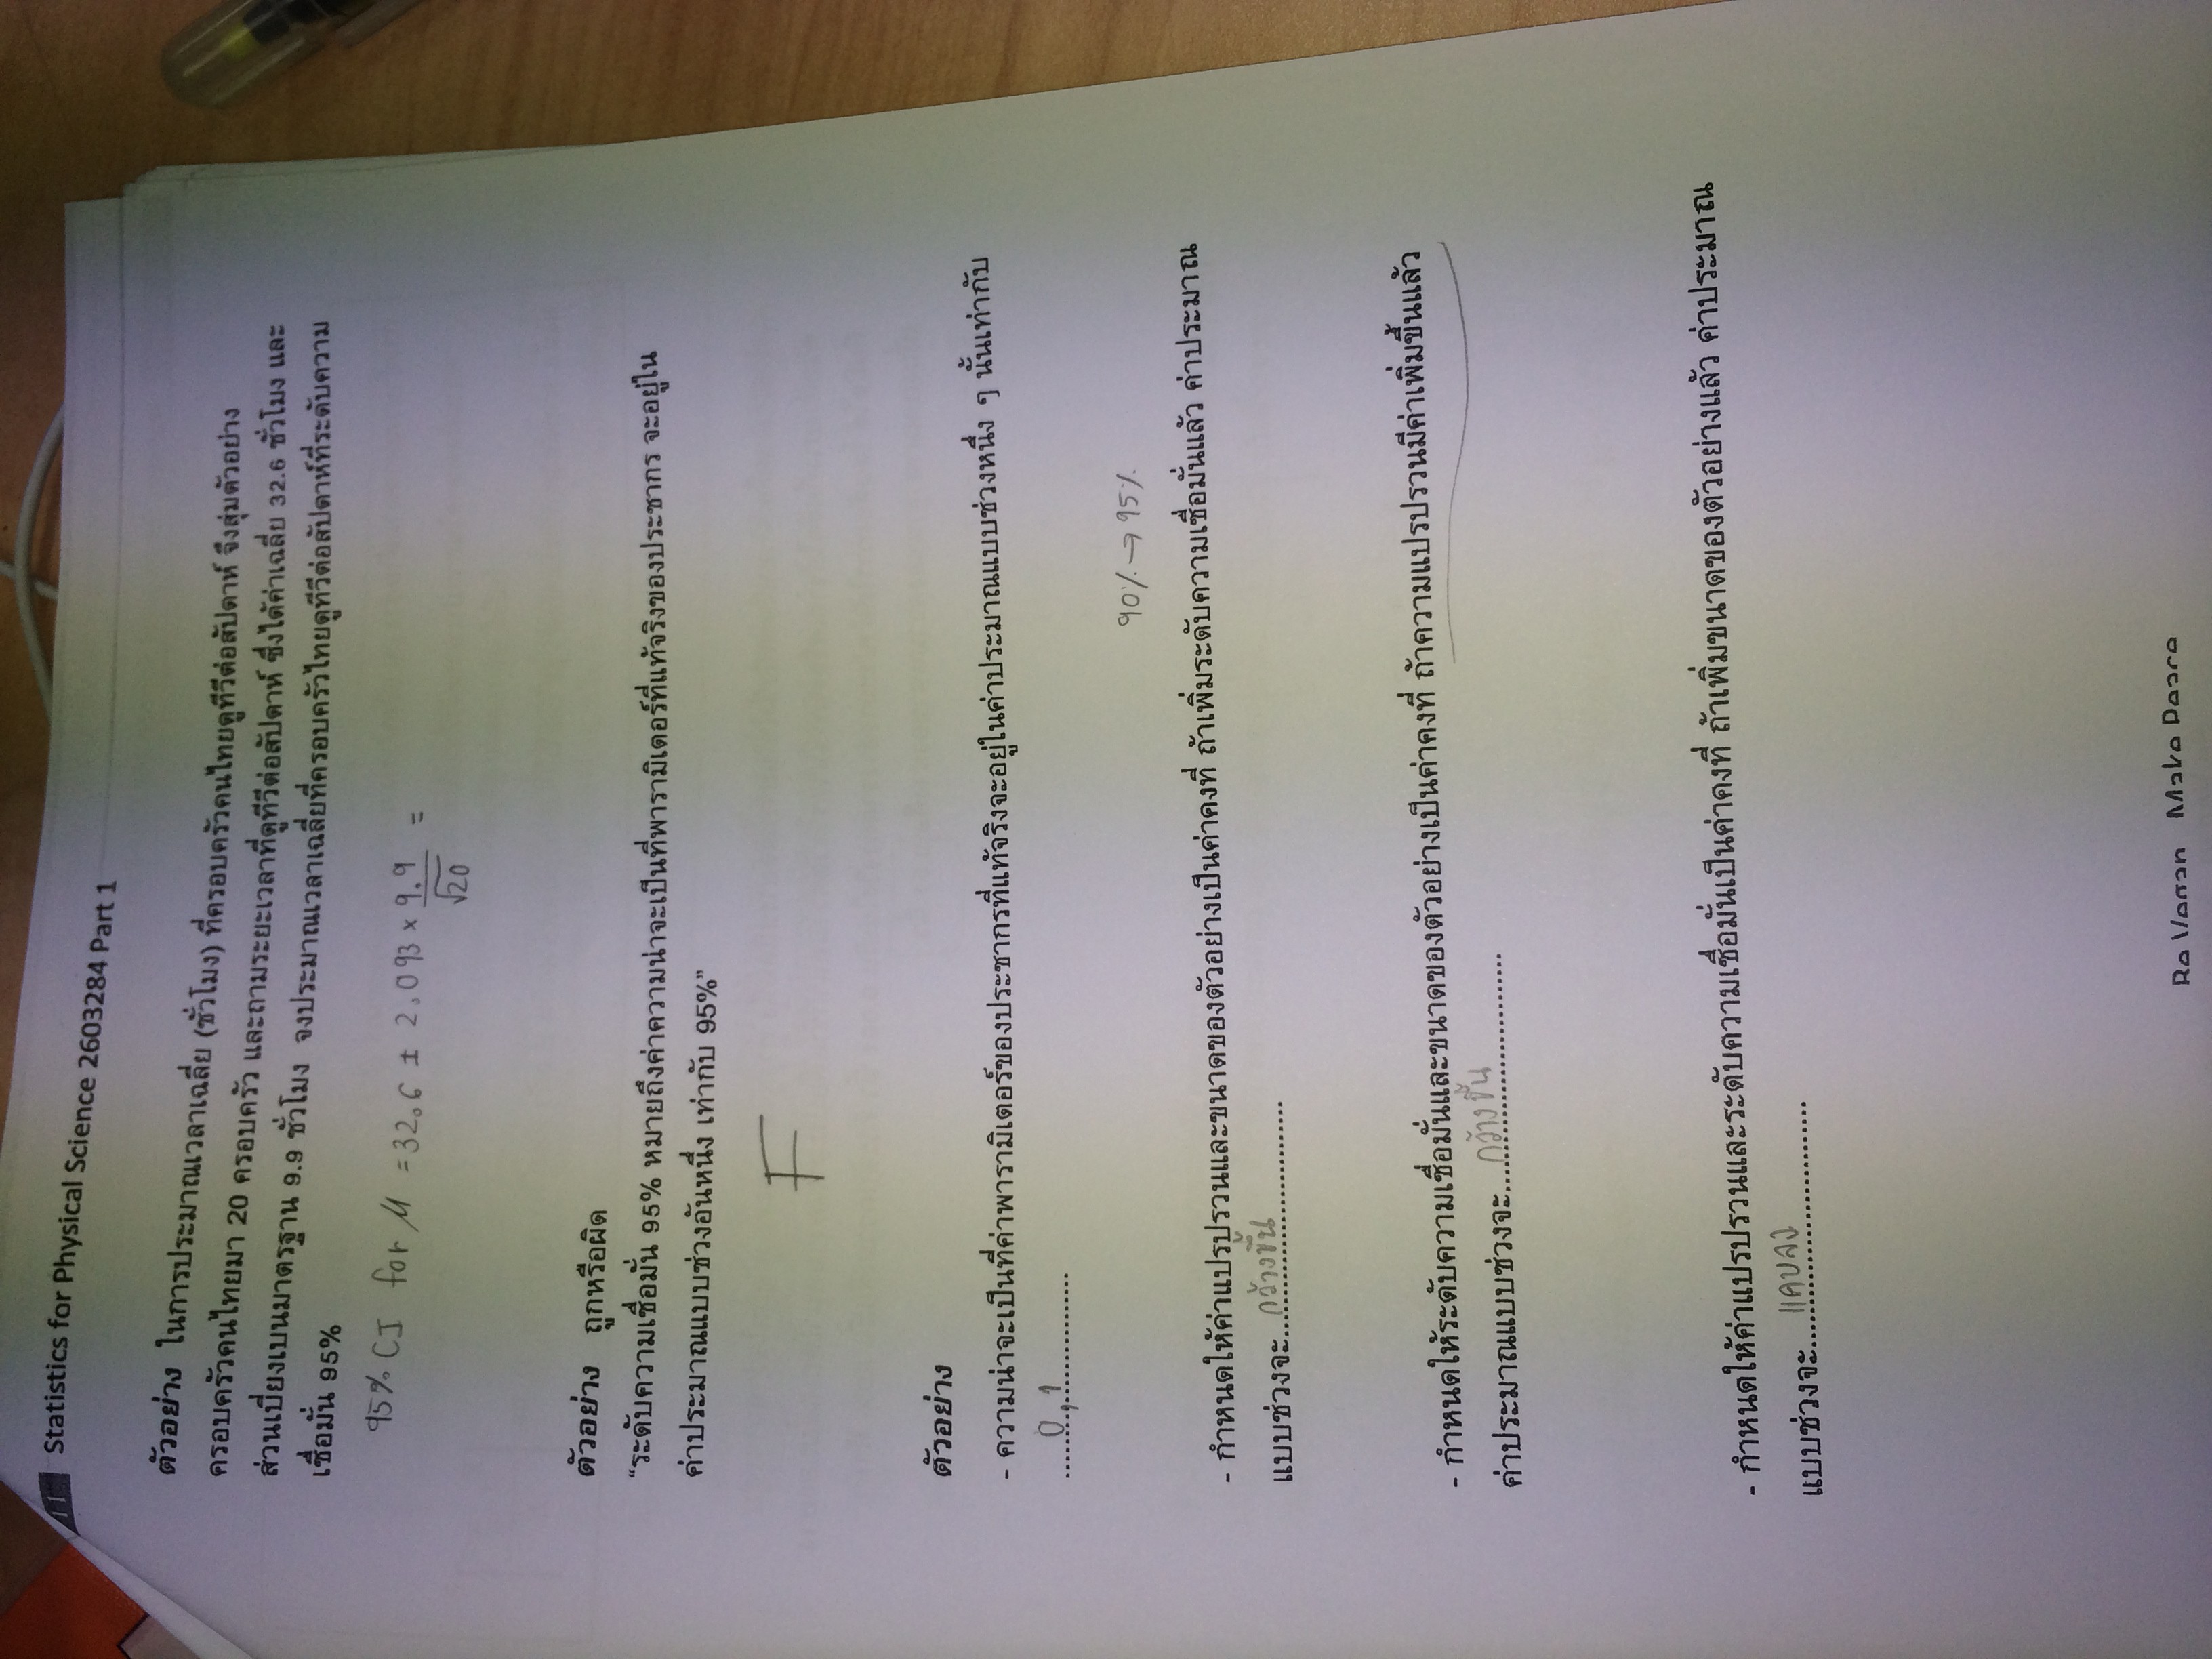 11 Statistics for Physical Science 2603284 Part 1
ตัวอย่าง ในการประมาณเวลาเฉลี่ย (ชั่วโมง) ที่ครอบครัวคนไทยดูทีวีต่อสัปดาห์ จึงสุ่มตัวอย่าง
ครอบครัวคนไทยมา 20 ครอบครัว และถามระยะเวลาที่ดูทีวีต่อสัปดาห์ ซึ่งได้ค่าเฉลี่ย 32.6 ชั่วโมง และ
ส่วนเบี่ยงเบนมาตรฐาน 9.9 ชั่วโมง จงประมาณเวลาเฉลี่ยที่ครอบครัวไทยดูทีวีต่อสัปดาห์ที่ระดับความ
เชื่อมั่น 95%
95% CI for μ = 32.6 ± 2.093 × 9.9/√20 =
ตัวอย่าง ถูกหรือผิด
"ระดับความเชื่อมั่น 95% หมายถึงค่าความน่าจะเป็นที่พารามิเตอร์ที่แท้จริงของประชากร จะอยู่ใน
ค่าประมาณแบบช่วงอันหนึ่ง เท่ากับ 95%"
F
ตัวอย่าง
- ความน่าจะเป็นที่ค่าพารามิเตอร์ของประชากรที่แท้จริงจะอยู่ในค่าประมาณแบบช่วงหนึ่ง ๆ นั้นเท่ากับ
.......0,1..............
90% → 95%
- กำหนดให้ค่าแปรปรวนและขนาดของตัวอย่างเป็นค่าคงที่ ถ้าเพิ่มระดับความเชื่อมั่นแล้ว ค่าประมาณ
แบบช่วงจะ....กว้างขึ้น..................
- กำหนดให้ระดับความเชื่อมั่นและขนาดของตัวอย่างเป็นค่าคงที่ ถ้าความแปรปรวนมีค่าเพิ่มขึ้นแล้ว
ค่าประมาณแบบช่วงจะ....กว้างขึ้น..................
- กำหนดให้ค่าแปรปรวนและระดับความเชื่อมั่นเป็นค่าคงที่ ถ้าเพิ่มขนาดของตัวอย่างแล้ว ค่าประมาณ
แบบช่วงจะ....แคบลง..................